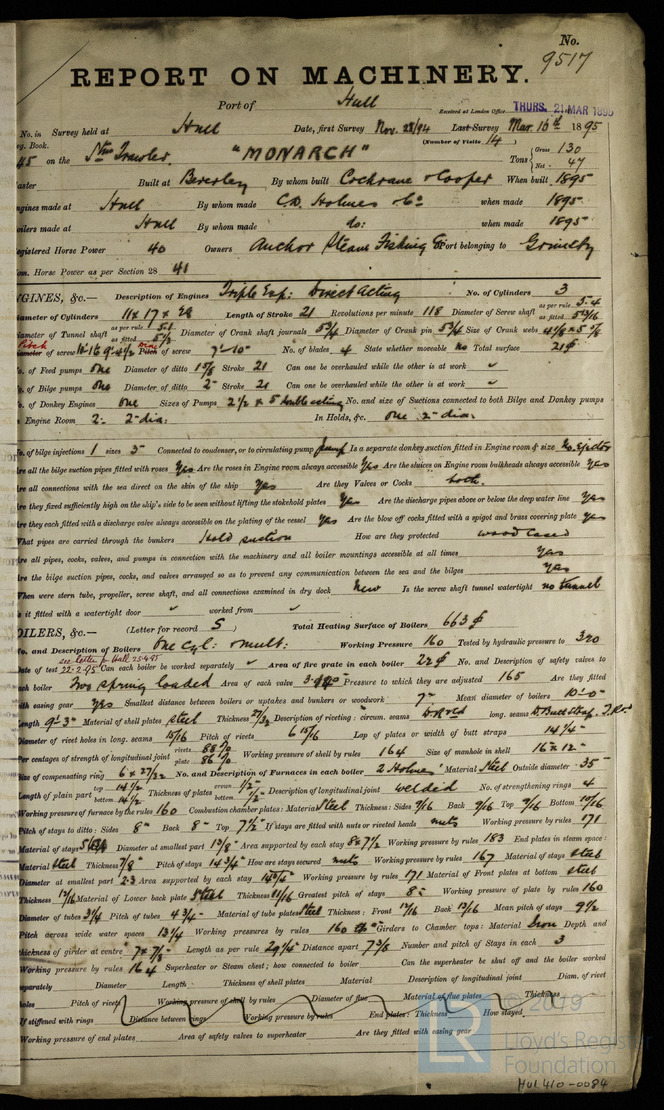 No.
9517
REPORT ON MACHINERY.
Port of Hull
Received at London Office THURS. 21 MAR 1895
No. in Survey held at Hull Date, first Survey Nov. 28/94 Last Survey Mar. 16th 1895
eg. Book. (Number of Visits 14)
45 on the Stm Trawler. "MONARCH" Tons Gross 130 Net 47
aster Built at Beverley By whom built Cochrane & Cooper When built 1895
ngines made at Hull By whom made C.D. Holmes & Co when made 1895
oilers made at Hull By whom made do: when made 1895
egistered Horse Power 40 Owners Anchor Steam Fishing Co Port belonging to Grimsby
om. Horse Power as per Section 28 41
NGINES, &c.— Description of Engines Triple Exp: Direct Acting No. of Cylinders 3
iameter of Cylinders 11 x 17 x Length of Stroke 21 Revolutions per minute 118 Diameter of Screw shaft as per rule 5.4 as fitted 5 9/16
iameter of Tunnel shaft as per rule 5.1 as fitted Diameter of Crank shaft journals 5 3/4 Diameter of Crank pin 5 3/4 Size of Crank webs
Pitch of screw Pitch of screw 7'-10" No. of blades 4 State whether moveable no Total surface
o. of Feed pumps one Diameter of ditto 1 5/8 Stroke 21 Can one be overhauled while the other is at work
o. of Bilge pumps one Diameter of ditto 2" Stroke 21 Can one be overhauled while the other is at work
o. of Donkey Engines one Sizes of Pumps 2 1/2 x 5 double acting No. and size of Suctions connected to both Bilge and Donkey pumps
Engine Room 2- 2" dia: In Holds, &c. one 2" dia.
o. of bilge injections 1 sizes 3" Connected to condenser, or to circulating pump pump Is a separate donkey suction fitted in Engine room & size no. Ejector
re all the bilge suction pipes fitted with roses yes Are the roses in Engine room always accessible yes Are the sluices on Engine room bulkheads always accessible yes
re all connections with the sea direct on the skin of the ship yes Are they Valves or Cocks both.
re they fixed sufficiently high on the ship's side to be seen without lifting the stokehold plates yes Are the discharge pipes above or below the deep water line yes
re they each fitted with a discharge valve always accessible on the plating of the vessel yes Are the blow off cocks fitted with a spigot and brass covering plate yes
What pipes are carried through the bunkers Hold suction How are they protected wood cased
re all pipes, cocks, valves, and pumps in connection with the machinery and all boiler mountings accessible at all times yes
re the bilge suction pipes, cocks, and valves arranged so as to prevent any communication between the sea and the bilges yes
When were stern tube, propeller, screw shaft, and all connections examined in dry dock New Is the screw shaft tunnel watertight no tunnel
s it fitted with a watertight door worked from
OILERS, &c.— (Letter for record S) Total Heating Surface of Boilers 663
o. and Description of Boilers One Cyl: mult: Working Pressure 160 Tested by hydraulic pressure to 320
see letter fr Hull 25.4.95
ate of test 22.2.95 Can each boiler be worked separately Area of fire grate in each boiler 22 No. and Description of safety valves to
ach boiler Two spring loaded Area of each valve Pressure to which they are adjusted 165 Are they fitted
ith easing gear yes Smallest distance between boilers or uptakes and bunkers or woodwork 7" Mean diameter of boilers 10'-0"
ength 9'-3" Material of shell plates steel Thickness 27/32 Description of riveting: circum. seams long. seams
iameter of rivet holes in long. seams 15/16 Pitch of rivets 6 15/16 Lap of plates or width of butt straps 14 1/4"
er centages of strength of longitudinal joint rivets 88% plate 86% Working pressure of shell by rules 164 Size of manhole in shell 16 x 12"
ize of compensating ring 6 x 27/32 No. and Description of Furnaces in each boiler 2 Holmes' Material steel Outside diameter 35"
ength of plain part top 14 1/2 bottom 14 1/2 Thickness of plates crown 1/2" bottom 1/2" Description of longitudinal joint welded No. of strengthening rings 4
orking pressure of furnace by the rules 160 Combustion chamber plates: Material steel Thickness: Sides 9/16 Back 9/16 Top 9/16 Bottom
itch of stays to ditto: Sides 8" Back 8" Top 7 1/2" If stays are fitted with nuts or riveted heads nuts Working pressure by rules 171
aterial of stays Diameter at smallest part 1 3/8" Area supported by each stay 8 x 7 1/2 Working pressure by rules 183 End plates in steam space:
aterial steel Thickness 7/8" Pitch of stays 14 3/4" How are stays secured nuts Working pressure by rules 167 Material of stays steel
iameter at smallest part 2.3 Area supported by each stay Working pressure by rules 171 Material of Front plates at bottom steel
hickness 13/16 Material of Lower back plate steel Thickness 11/16 Greatest pitch of stays 8" Working pressure of plate by rules 160
iameter of tubes 3 1/4 Pitch of tubes 4 3/4" Material of tube plates steel Thickness: Front 13/16 Back 13/16 Mean pitch of stays 9 1/2
itch across wide water spaces 13 1/4 Working pressures by rules 160 Girders to Chamber tops: Material Iron Depth and
hickness of girder at centre 7 x 7/8" Length as per rule Distance apart 7 3/8 Number and pitch of Stays in each 3
orking pressure by rules 164 Superheater or Steam chest; how connected to boiler Can the superheater be shut off and the boiler worked
eparately Diameter Length Thickness of shell plates Material Description of longitudinal joint Diam. of rivet
holes Pitch of rivets Working pressure of shell by rules Diameter of flue Material of flue plates Thickness
If stiffened with rings Distance between rings Working pressure by rules End plates: Thickness How stayed
Working pressure of end plates Area of safety valves to superheater Are they fitted with easing gear
© 2019
Lloyd's Register
Foundation
HUL410-0084